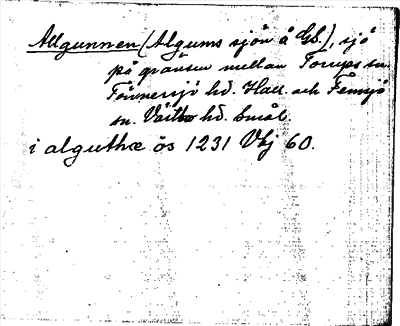 Allgunnen (Algums sjön å GS.), sjö
på gränsen mellan Torups sn.
Tönnersjö hd. Hall. och Femsjö
sn. Västbo hd. Smål.
i alguthæ ös 1231 Vhj 60.